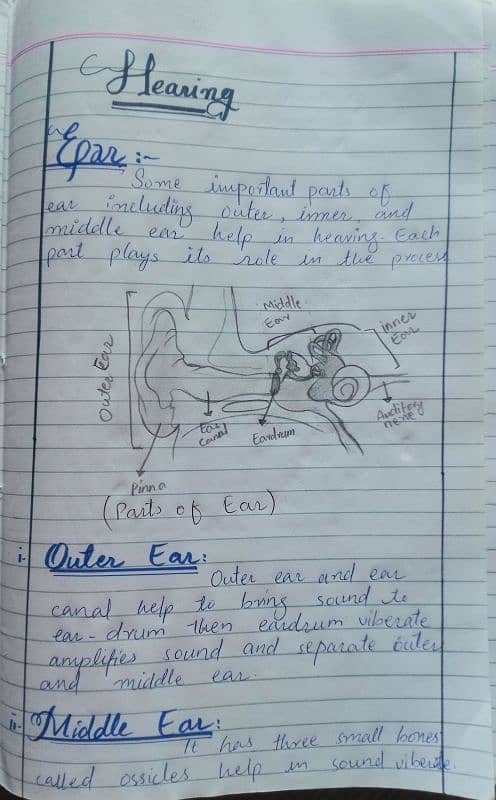 Hearing
Ear :-
Some important parts of
ear including outer, inner, and
middle ear help in hearing. Each
part plays its role in the process
Middle
Ear
inner
Ear
Outer Ear
Auditory
nerve
Ear
canal
Eardrum
Pinna
(Parts of Ear)
i- Outer Ear:
Outer ear and ear
canal help to bring sound to
ear-drum then eardrum viberate
amplifies sound and separate outer
and middle ear.
ii- Middle Ear:
It has three small bones
called ossicles help in sound viberate.